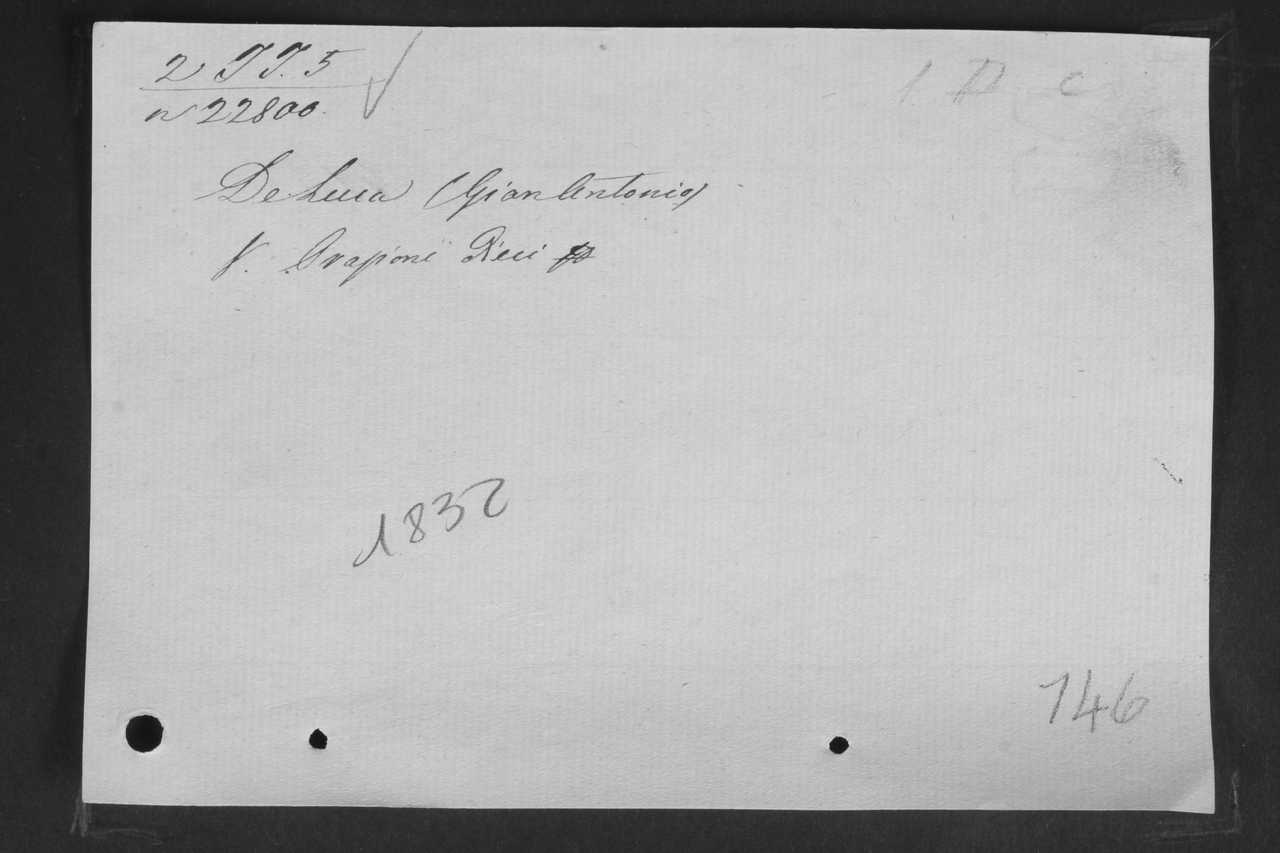 2 TT. 5
n 22800.
De Luca (Gian Antonio)
V. Orazioni Dieci
1832
146